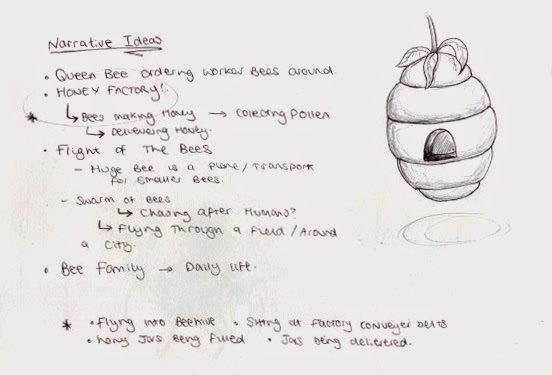 Narrative Ideas
• Queen Bee ordering worker Bees around.
• HONEY FACTORY!
* ↳ Bees making Honey → Collecting Pollen
↳ Delivering Honey.
• Flight of The Bees
- Huge Bee is a plane / Transport
for smaller Bees.
- Swarm of Bees
↳ Chasing after Humans?
↳ Flying Through a field / Around
a City.
• Bee Family → Daily life.
* • Flying into Beehive • Sitting at Factory conveyer Belts
• hony Jars Being filled • Jars being delivered.